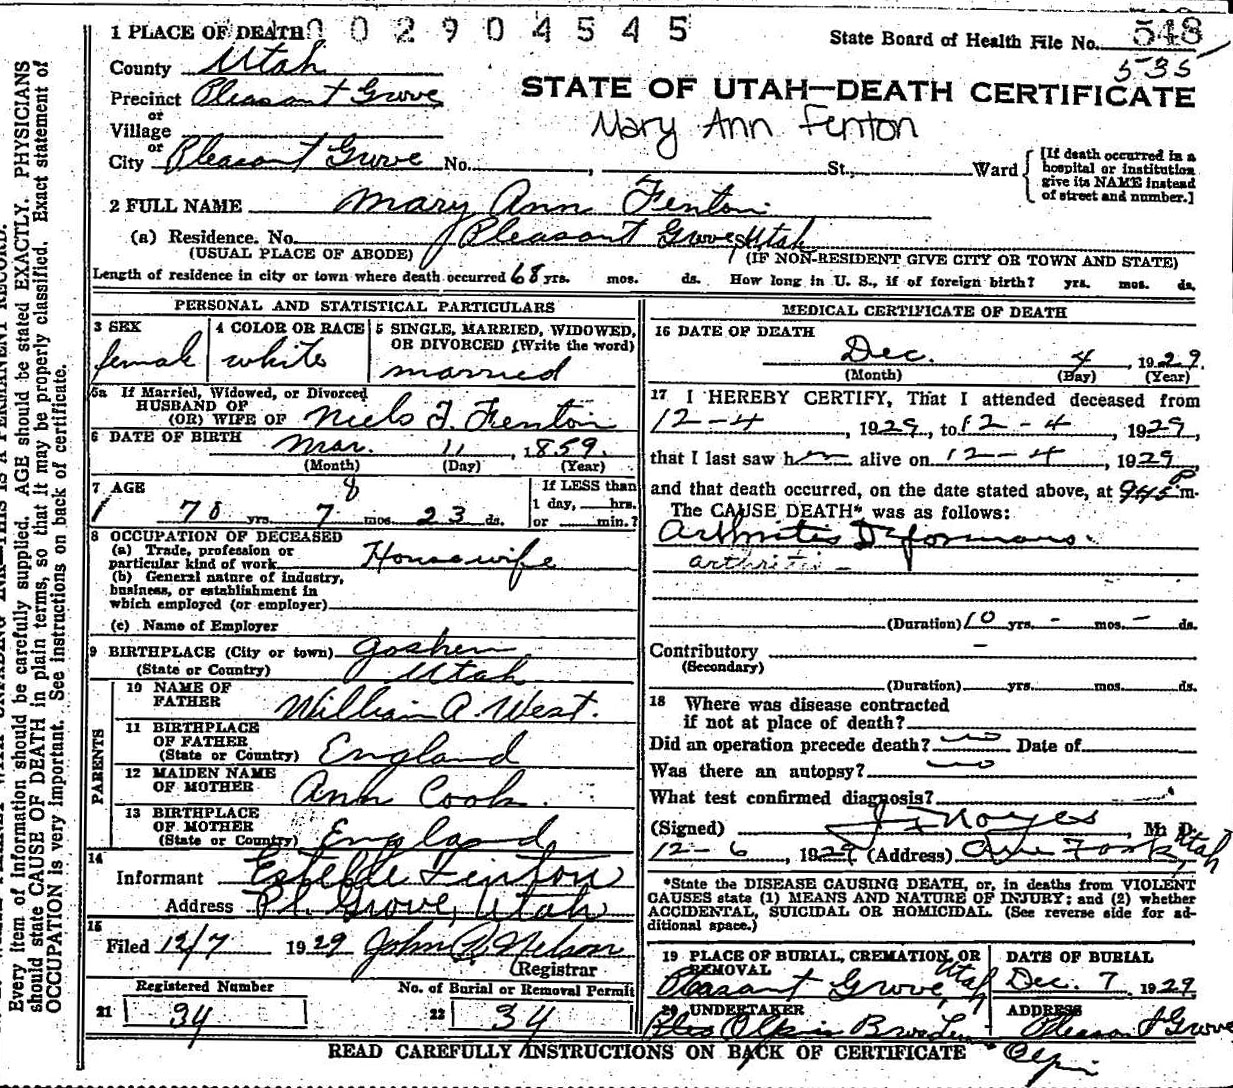 1 PLACE OF DEATH 0 0 2 9 0 4 5 4 5
State Board of Health File No. 548
535
County Utah
STATE OF UTAH—DEATH CERTIFICATE
Precinct Pleasant Grove
or
Village
Mary Ann Fenton
or
City Pleasant Grove No. , St., Ward
[If death occurred in a hospital or institution give its NAME instead of street and number.]
2 FULL NAME Mary Ann Fenton
(a) Residence. No. Pleasant Grove, St., Utah
(USUAL PLACE OF ABODE) (IF NON-RESIDENT GIVE CITY OR TOWN AND STATE)
Length of residence in city or town where death occurred 68 yrs. mos. ds. How long in U. S., if of foreign birth? yrs. mos. ds.
PERSONAL AND STATISTICAL PARTICULARS
3 SEX
female
4 COLOR OR RACE
white
5 SINGLE, MARRIED, WIDOWED, OR DIVORCED (Write the word)
married
5a If Married, Widowed, or Divorced
HUSBAND OF
(OR) WIFE OF Niels F. Fenton
6 DATE OF BIRTH Mar. 11, 1859.
(Month) (Day) (Year)
7 AGE 8
70 yrs. 7 mos. 23 ds.
If LESS than
1 day, hrs.
or min.?
8 OCCUPATION OF DECEASED
(a) Trade, profession or
particular kind of work Housewife
(b) General nature of industry,
business, or establishment in
which employed (or employer)
(c) Name of Employer
9 BIRTHPLACE (City or town) Goshen
(State or Country) Utah
PARENTS
10 NAME OF
FATHER William A. West.
11 BIRTHPLACE
OF FATHER
(State or Country) England
12 MAIDEN NAME
OF MOTHER Ann Cook.
13 BIRTHPLACE
OF MOTHER
(State or Country) England
14
Informant Estelle Fenton
Address Pl. Grove, Utah
15
Filed 12/7 1929 John P. Nelson
Registrar
Registered Number
21 34
No. of Burial or Removal Permit
22 34
MEDICAL CERTIFICATE OF DEATH
16 DATE OF DEATH
Dec. 4, 1929.
(Month) (Day) (Year)
17 I HEREBY CERTIFY, That I attended deceased from
12-4, 1929, to 12-4, 1929,
that I last saw h alive on 12-4, 1929,
and that death occurred, on the date stated above, at 945 P m.
The CAUSE DEATH* was as follows:
Arthritis Deformans.
arthritis
(Duration) 10 yrs. - mos. - ds.
Contributory -
(Secondary)
(Duration) yrs. mos. ds.
18 Where was disease contracted
if not at place of death?
Did an operation precede death? no Date of
Was there an autopsy? no
What test confirmed diagnosis?
(Signed) Noyes, M. D.
12-6, 1929 (Address) Am Fork, Utah
*State the DISEASE CAUSING DEATH, or, in deaths from VIOLENT
CAUSES state (1) MEANS AND NATURE OF INJURY; and (2) whether
ACCIDENTAL, SUICIDAL OR HOMICIDAL. (See reverse side for additional space.)
19 PLACE OF BURIAL, CREMATION, OR
REMOVAL
Pleasant Grove, Utah
DATE OF BURIAL
Dec. 7 1929
20 UNDERTAKER
Olpin Bros
ADDRESS
Pleasant Grove
Olpin
READ CAREFULLY INSTRUCTIONS ON BACK OF CERTIFICATE
THIS IS A PERMANENT RECORD.
Every item of information should be carefully supplied. AGE should be stated EXACTLY. PHYSICIANS
should state CAUSE OF DEATH in plain terms, so that it may be properly classified. Exact statement of
OCCUPATION is very important. See instructions on back of certificate.